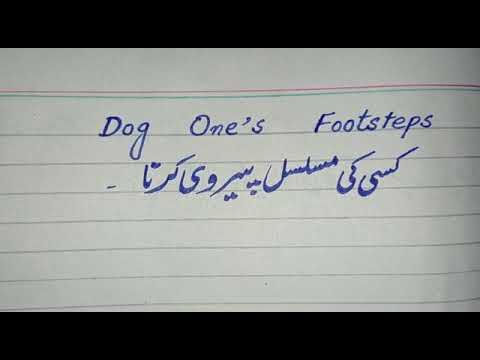 Dog One's Footsteps
کسی کی مسلسل پیروی کرتا ۔